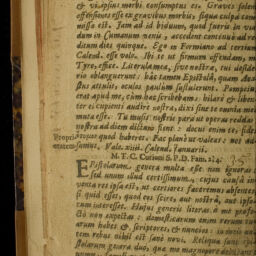 & vi ipsius morbi consumptus es. Graves solent
offensiones esse ex gravibus morbis, siqua culpa com-
missa est. Jam ad id biduum, quod fueris in vi-
dum in Cumanum venia, accedent continuo ad re-
ditum dies quinque. Ego in Formiano ad tertium
Calend. esse volo. Ibi te ut firmum offendam, mi
Tyro, effice. Literulæ meæ, sive nostræ, tui deside-
rio oblanguerunt: hac tamen Epistola, quam Aca-
stus attulit, oculos paulum sustulerunt. Pompeius
erat apud me, cum hæc scribebam: hilare & liben-
ter ei cupienti audire nostra, dixi sine te omnia mea
muta esse. Tu musis nostris para ut operas reddas
nostra ad diem dictam fient: docui enim te, fides
quod haberet. Fac planè ut valeas: nos ad
summus, Vale. xiiij. Calend. Januarii.
M. T. C. Curioni S. P. D. Fam. 2.l.4.
EPistolarum, genera multa esse non ignoras:
sed unum illud certissimum, cujus causa in-
venta res ipsa est, ut certiores faceremus absentes,
si quid esset, quod eos scire, aut nostra, aut ipso-
rum interesset. Hujus generis literas à me profe-
ctò non expectas: domesticarum enim rerum tua-
rum habes & scriptores, & nuncios: in meis au-
tem rebus nihil est sanè novi. Reliqua sunt epi-
stolarum genera duo, quæ me magnopere delectant